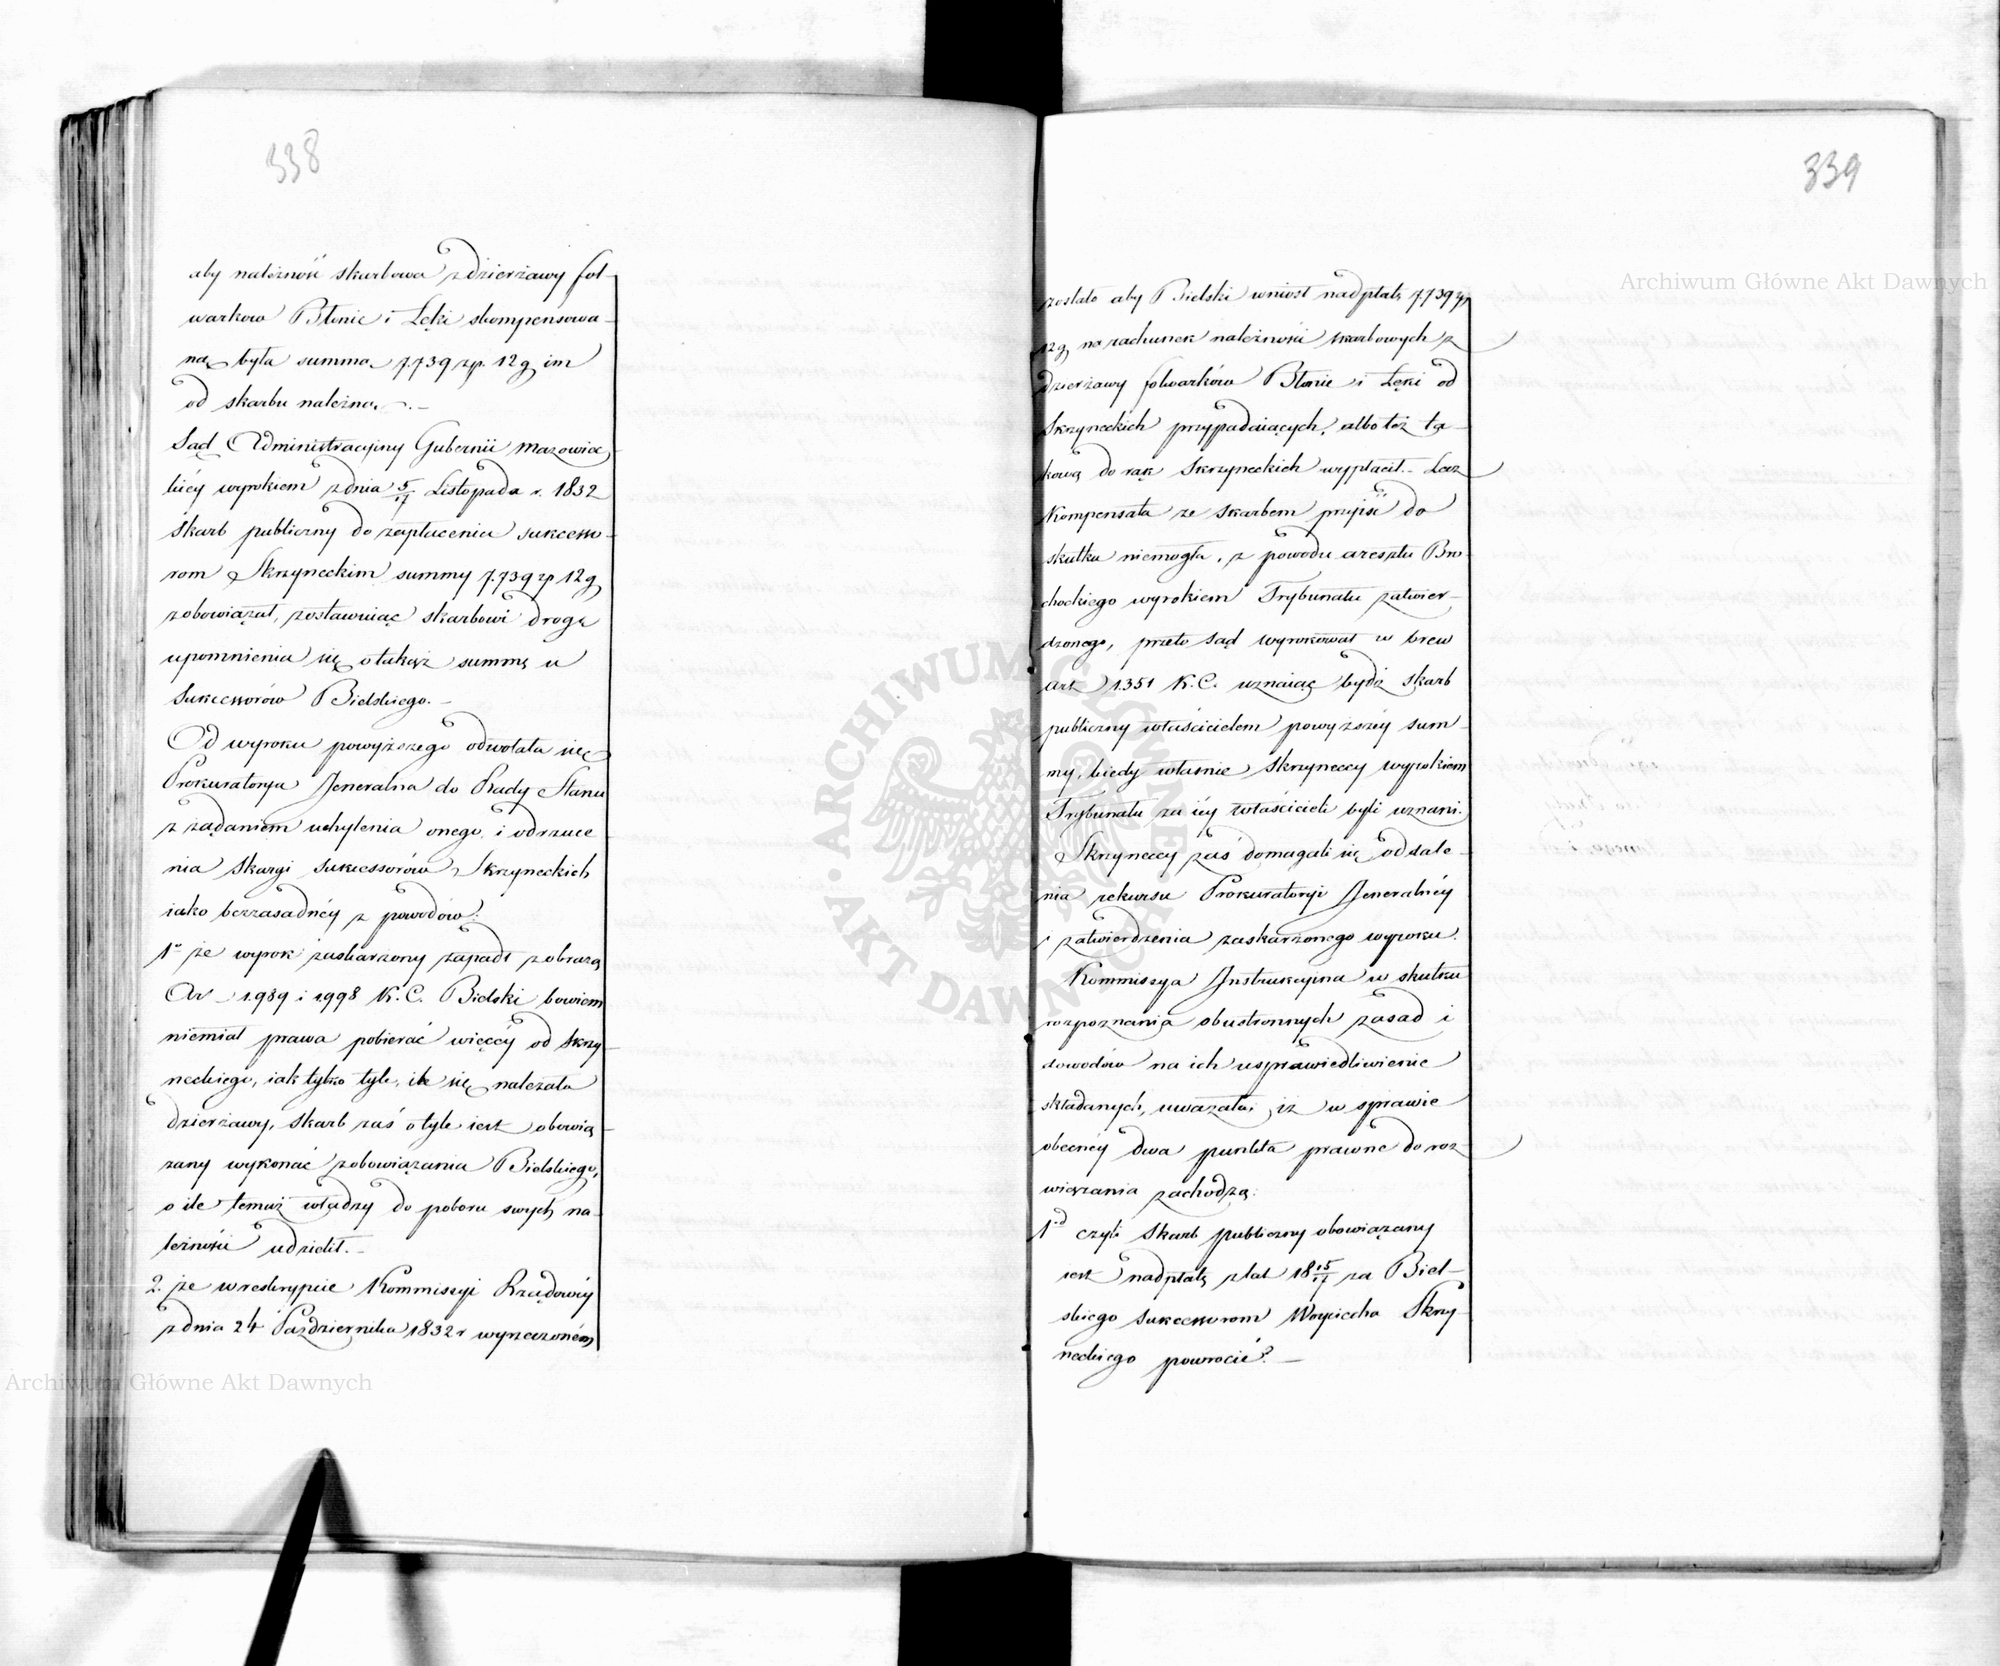 338
aby należność skarbowa z dzierżawy fol-
warków Błonie i Łęki skompensowa-
ną była summą 7.739 zp. 12 g im
od skarbu należną. -
Sąd Administracyjny Gubernii Mazowiec
kiéy wyrokiem z dnia 5/17 Listopada r. 1832
skarb publiczny do zapłacenia sukcesso-
rom Skrzyneckim summy 7.739 zp 12 g
zobowiązał, zostawuiąc skarbowi drogę
upomnienia się o takąż summę u
Sukcessorów Bielskiego. -
Od wyroku powyższego odwołała się
Prokuratorya Jeneralna do Rady Stanu
z żądaniem uchylenia onego i odrzuce
nia skargi sukcessorów Skrzyneckich
iako bezzasadnéy z powodów:
1o że wyrok zaskarżony zapadł z obrazą
Ar 1989 i 1998 K. C. Bielski bowiem
niemiał prawa pobierać więcéy od Skrzy-
neckiego, iak tylko tyle, ile się należało
dzierżawy, skarb zaś o tyle iest obowią-
zany wykonać zobowiązania Bielskiego,
o ile temuż władzy do poboru swych na-
leżności udzielił. -
2. że w reskrypcie Kommissyi Rządowéy
z dnia 24 Października 1832 r wyrzeczoném
339
zostało aby Bielski wniósł nadpłatę 7.739 zp
12 g na rachunek należności skarbowych z
dzierżawy folwarków Błonie i Łęki od
Skrzyneckich przypadaiących, albo też ta-
kową do rąk Skrzyneckich wypłacił. - Lecz
Kompensata ze skarbem przyiść do
skutku niemogła, z powodu aresztu Bro-
chockiego wyrokiem Trybunału zatwier-
dzonego, przeto Sąd wyrokował w brew
art 1351 K. C. uznaiąc bydź skarb
publiczny właścicielem powyższéy sum-
my, kiedy właśnie Skrzyneccy wyrokiem
Trybunału za iéy właścicieli byli uznani.
Skrzyneccy zaś domagali się oddale-
nia rekursu Prokuratoryi Jeneralnéy
i zatwierdzenia zaskarżonego wyroku.
Kommissya Instrukcyina w skutku
rozpoznania obustronnych zasad i
dowodów na ich usprawiedliwienie
składanych, uważała, iż w sprawie
obecnéy dwa punkta prawne do roz-
wiązania zachodzą:
1d czyli Skarb publiczny obowiązany
iest nadpłatę z lat 18 15/17 za Biel-
skiego Sukcessorom Woyciecha Skrzy-
neckiego powrócić? -
Archiwum Główne Akt Dawnych
Archiwum Główne Akt Dawnych
ARCHIWUM GŁÓWNE AKT DAWNYCH